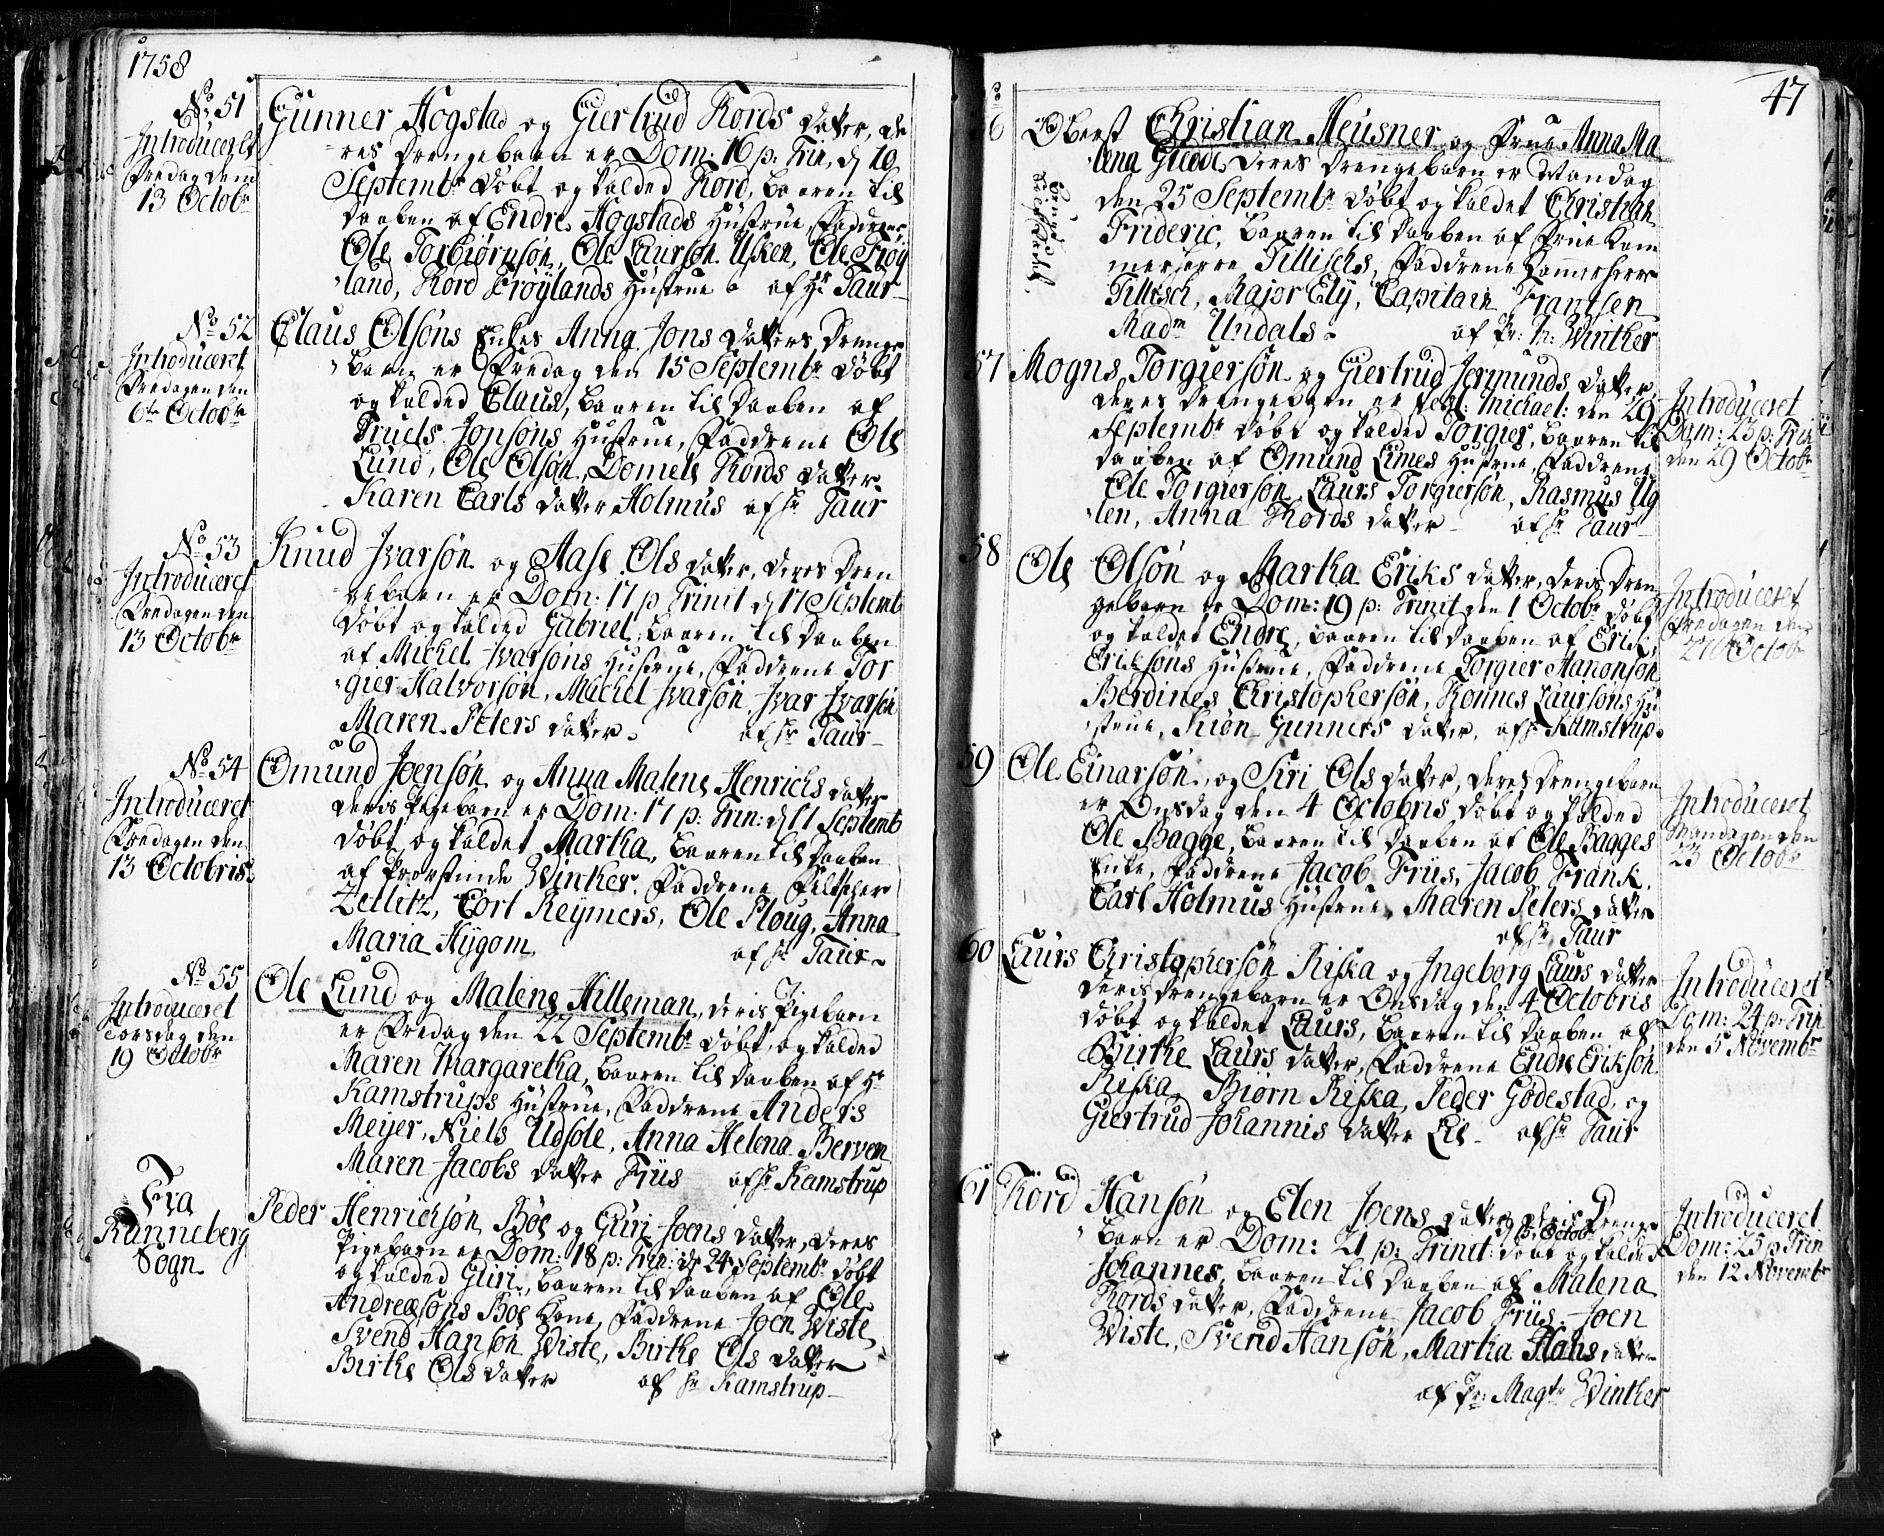 1758
No 51
Introduceret
Fredag dem
13 Octobr
Gunner Hogstad og Giertrud Tords datter, de
res drengebarn er Dom: 16 p: Trin, d 10
Septembr døbt og kalded Tord, baaren til
daaben af Endre Hogstads Hustrue, Faddrene
Ole Torbiørnsøn, Ole Laursøn Usken, Ole Frøy
land, Tord Frøylands Hustrue af Hr Taur
No 52
Introduceret
Fredagen den
6te Octobr
Claus Olsøns Enkes Anna Jons datters drenge
barn er Fredag den 15 Septembr døbt
og kalded Claus, baaren til daaben af
Truels Jonsøns Hustrue, Faddrene Ole
Lund, Ole Olsøn, Dornele Tords datter
Karen Carls datter Holmus af hr Taur
No 53
Introduceret
Fredagen den
13 Octobr
Knud Ivarsøn og Aase Ols datter, deres dren
gebarn er Dom: 17 p Trinit d 17 Septemb
døbt og kalded Gabriel, baaren til daaben
af Michel Ivarsøns Hustrue, Faddrene Tor
gier Halvorsøn, Michel Ivarsøn, Ivar Ivarsøn
Maren Peters datter af hr Taur
No 54
Introduceret
Fredagen den
13 Octobris
Omund Joensøn og Anna Malene Henrichs datter
deris Pigebarn er Dom: 17 p: Trin: d 17 Septemb
døbt og kaldet Martha, baaren til daaben
af Provstinde Winther, Faddrene Feltscher
Zetlitz, Cort Reymers, Ole Ploug, Anna
Maria Hygom af hr Taur
No 55
Introduceret
Torsdag den
19 Octobr
Ole Lund og Malene Hilleman, deris Pigebarn
er Fredag den 22 Septembr døbt, og kalded
Maren Margaretha, baaren til daaben af Hr
Kamstrups Hustrue, Faddrene Anders
Meyer, Niels Udsole, Anna Helena Berven
Maren Jacobs datter Friis af hr Kamstrup
Fra
Ranneberg
Sogn
Peder Henrichsøn Bøe og Guri Joens datter, deres
Pigebarn er Dom: 18 p: Trin: d 24 Septembr døbt
og kalded Guri, baaren til daaben af Ole
Andreæsøns Bøe Kone, Faddrene Joen Wiste
Svend Hansøn Wiste, Birthe Ols datter
Birthe Ols datter af hr Kamstrup
47
6 Oberst Christian Heusner og Frue Anna Ma
lena Giedde, deres drengebarn er Mandag
den 25 Septembr døbt og kaldet Christian
Frideric, baaren til daaben af Frue Kam
merherre Tillischs, Faddrene Kammerherr
Tillisch, Major Ely, Capitain Frantsen
Madm Undals af Pr: M: Winther
57 Mogns Torgiersøn og Giertrud Jermunds datter
deres drengebarn er Fest: Michael: den 29
Septembr døbt og kalded Torgier, baaren til
daaben af Omund Limes Hustrue, Faddrene
Ole Torgiersøn, Laurs Torgiersøn, Rasmus Ug
len, Anna Tords datter af hr Taur
Introduceret
Dom: 23 p: Trin
den 29 Octobr
58 Ole Olsøn og Martha Eriks datter, deris dren
gebarn er Dom: 19 p: Trinit den 1 Octobr døbt
og kaldet Endre, baaren til daaben af Erik
Eriksøns Hustrue, Faddrene Torgier Hanonsøn
Berdines Christophersøn, Tonnes Laursøns Hu
strue, Kiøn Gunners datter, af hr Kamstrup
Introduceret
Fredagen den
27 Octobr
59 Ole Einarsøn, og Siri Ols datter, deres drengebarn
er Onsdag den 4 Octobris døbt og kalded
Ole Bagge, baaren til daaben af Ole Bagges
Enke, Faddrene Jacob Friis, Jacob Frank,
Carl Holmus Hustrue, Maren Peters datter
af hr Taur
Introduceret
Mandagen den
23 Octobr
60 Laurs Christophersøn Riska og Ingeborg Laurs datter
deris drengebarn er Onsdag den 4 Octobris
døbt og kaldet Laurs, baaren til daaben af
Birthe Laurs datter, Faddrene Endre Eriksøn
Riska, Biørn Riska, Peder Godestad, og
Giertrud Johannis datter Lie af hr Taur
Introduceret
Dom: 24 p: Trin
den 5 Novembr
61 Tord Hansøn og Elen Joens datter deris Drenge
d 15 Octobr
barn er Dom: 21 p: Trinit: døbt og kalded
Johannes, baaren til daaben af Malena
Tords datter, Faddrene Jacob Friis, Joen
Wiste, Svend Hansøn, Martha Hans datter
af Pr: Magtr Winther
Introduceret
Dom: 25 p Trin
den 12 Novembr